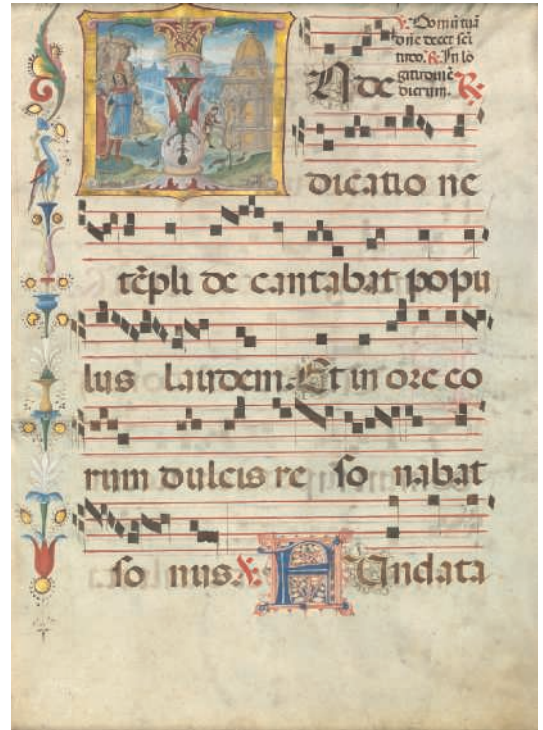 ℣. Domū tuā
dn̄e decet scī
tudo. ℟. In lō
gitudinē
dierum. ℟.
IN de
dicatio ne
tēpli de cantabat popu
lus laudem. Et in ore eo
rum dulcis re so nabat
so nus. ℣. FUndata